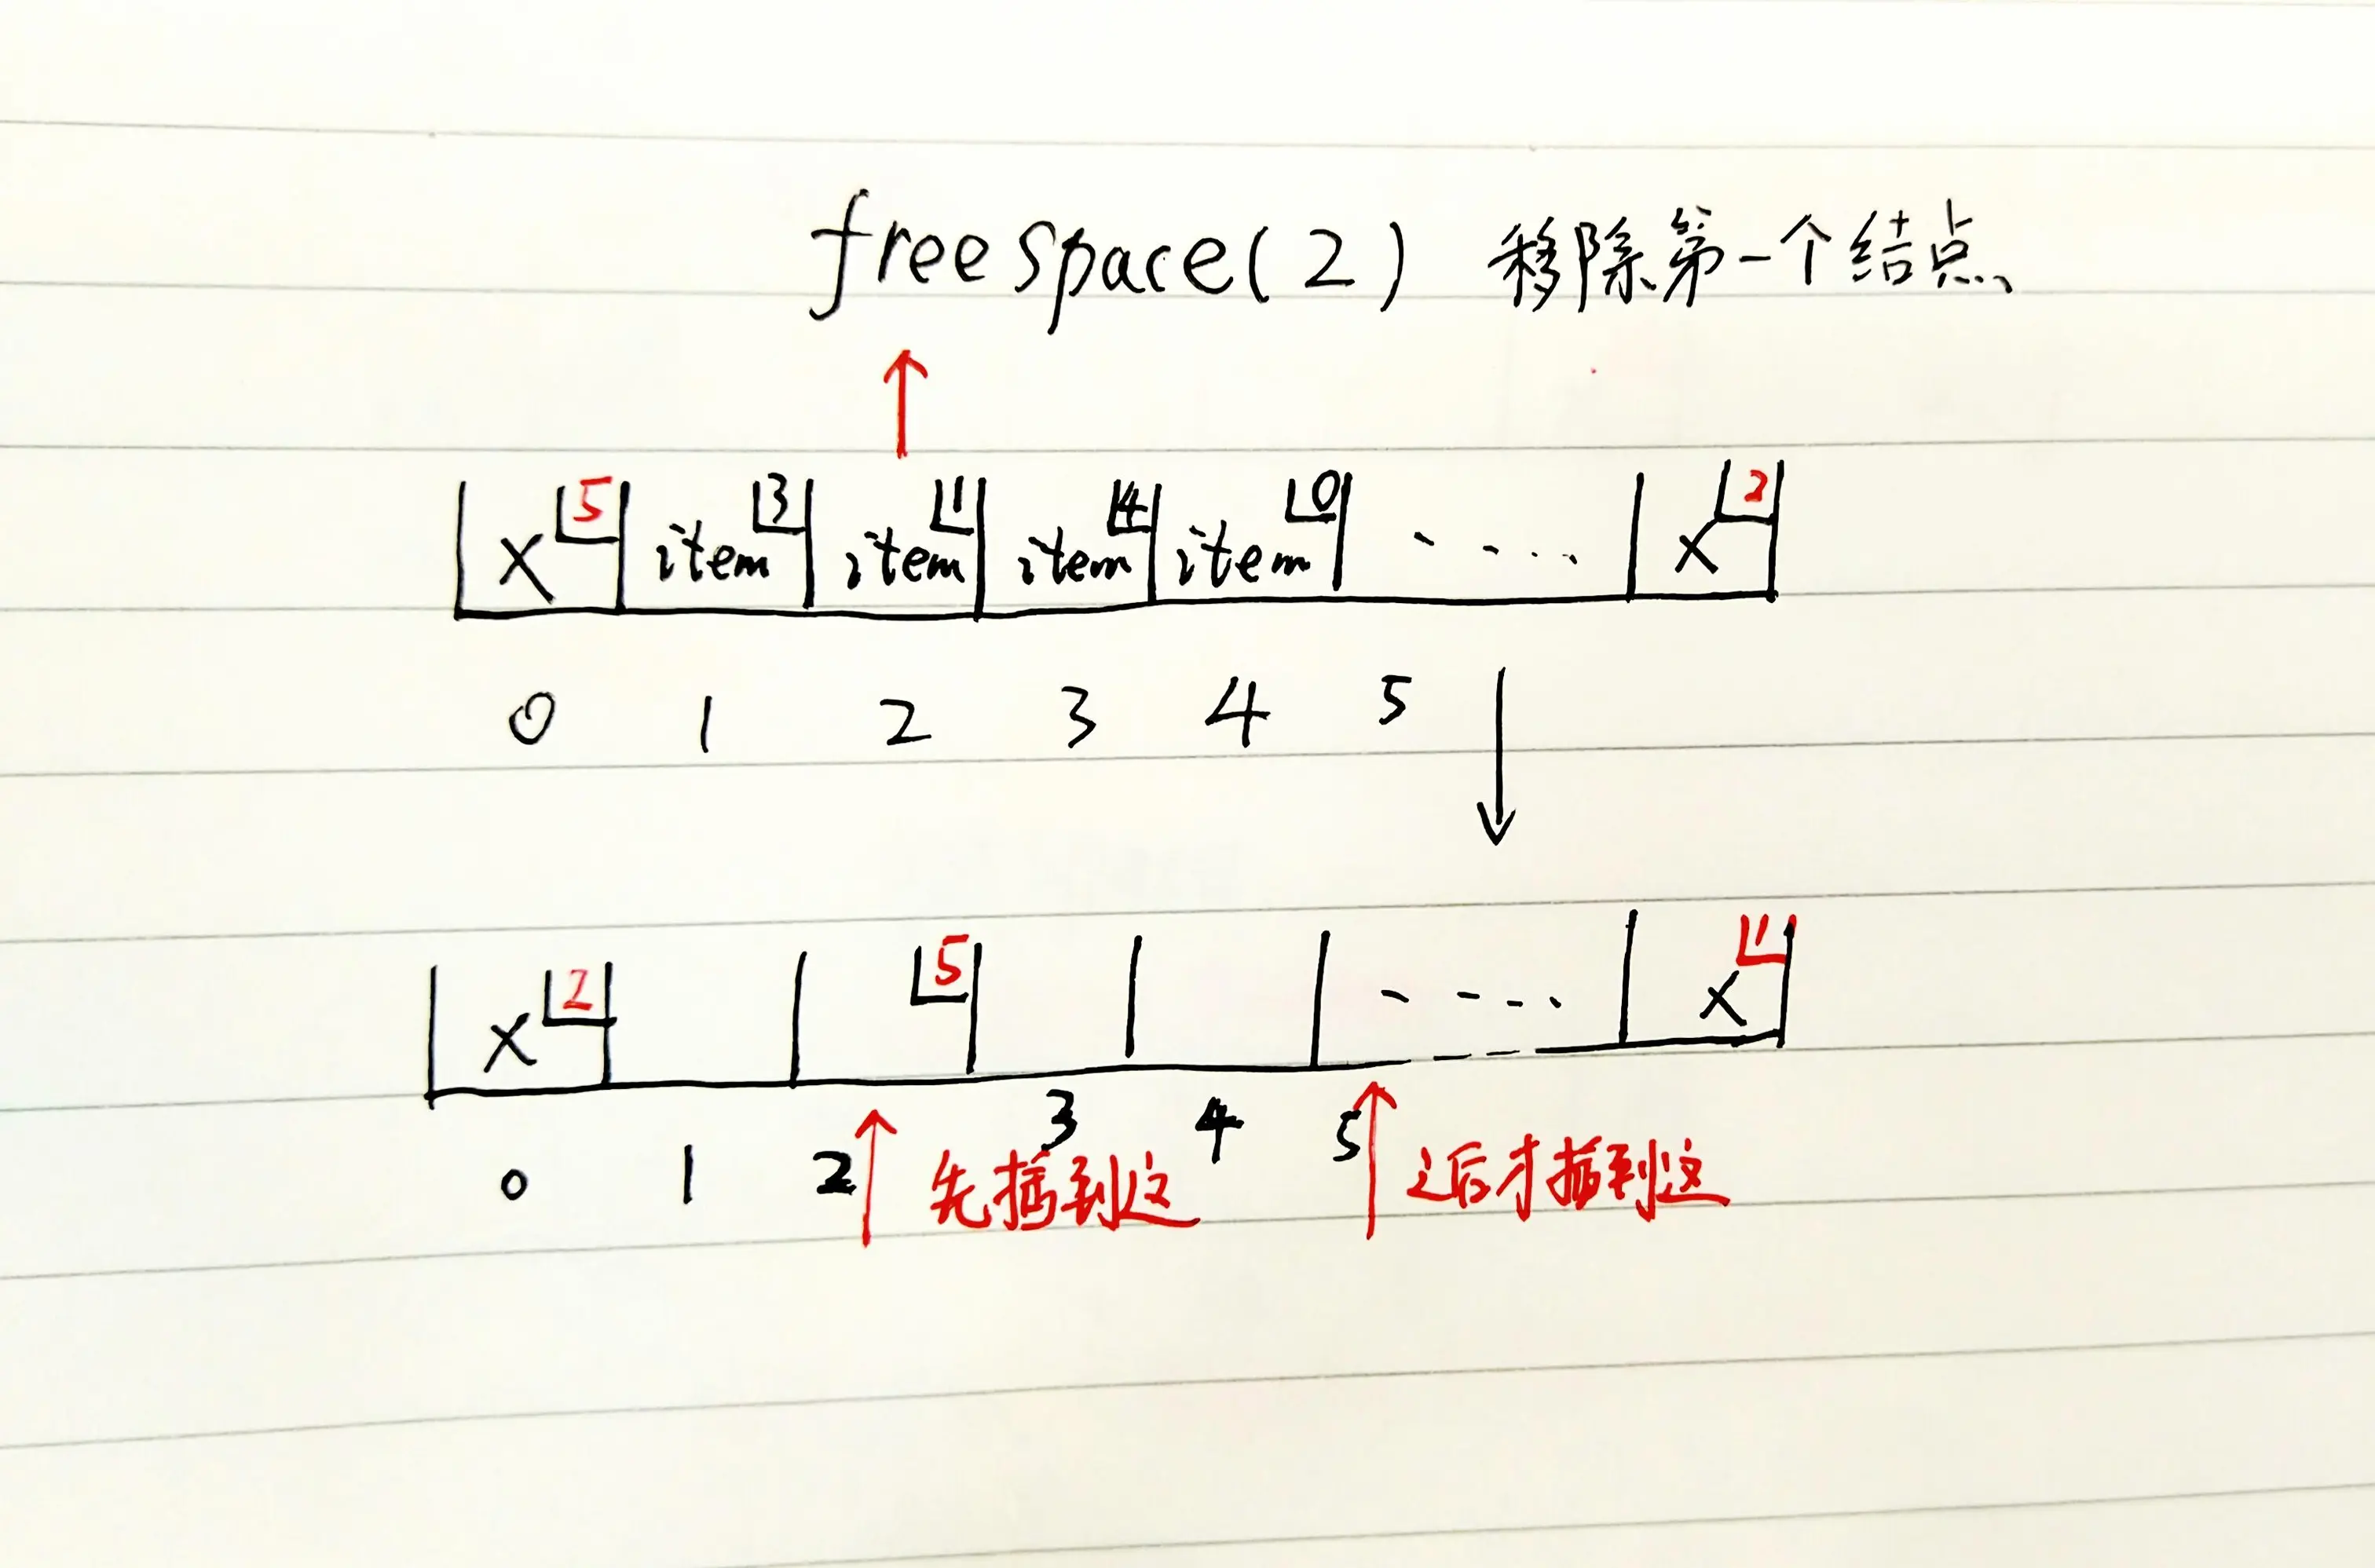 freespace(2) 移除第一个结点
x 5 item 3 item 1 item 4 item 0 ..... x 2
0 1 2 3 4 5
x 2 5 ..... x 1
0 1 2 3 4 5
先插到这 之后才插到这